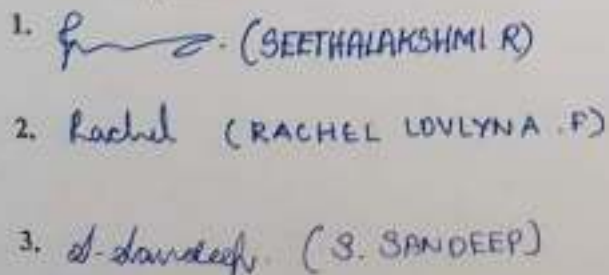 1. (SEETHALAKSHMI R)
2. Rachel (RACHEL LOVLYNA .F)
3. S. Sandeep. (S. SANDEEP)